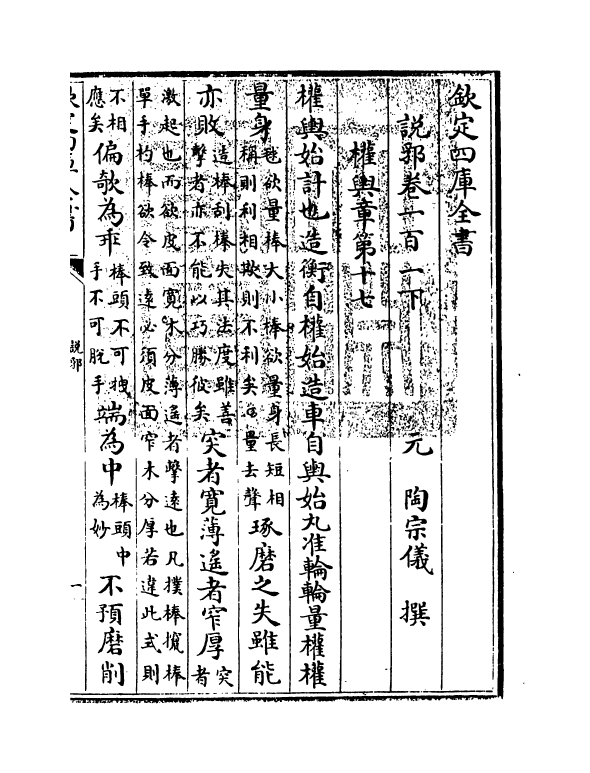 欽定四庫全書
說郛卷一百一下　元　陶宗儀　撰
權輿章第十七
權輿始計也造衡自權始造車自輿始丸准輪輪量權權
量身毬欲量棒大小棒欲量身長短相稱則利相欺則不利矣量去聲琢磨之失雖能
亦敗造棒刮棒失其法度雖善擊者亦不能以巧勝彼矣突者寬薄遙者窄厚突者
激起也而欲皮面寬木分薄遙者擊遠也凡撲棒攛棒
單手杓棒欲令致遠必須皮面窄木分厚若違此式則
不相應矣偏欹為乖棒頭不可拽手不可脫手端為中棒頭中為妙不預磨削
說郛
一